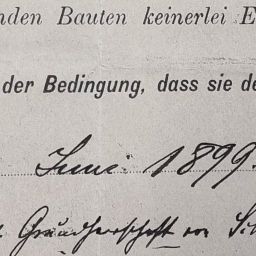 nden Bauten keinerlei E
der Bedingung, dass sie de
Juni 1899.
Grundherrschaft von